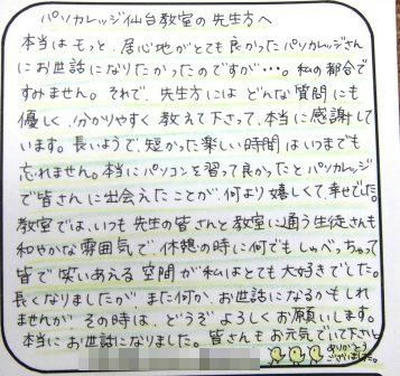 パソカレッジ仙台教室の先生方へ
本当はもっと、居心地がとても良かったパソカレッジさん
にお世話になりたかったのですが…。私の都合で
すみません。それで、先生方にはどんな質問にも
優しく、分かりやすく教えて下さって、本当に感謝して
います。長いようで、短かった楽しい時間はいつまでも
忘れません。本当にパソコンを習って良かったとパソカレッジ
で皆さんに出会えたことが、何より嬉しくて、幸せでした。
教室では、いつも先生の皆さんと教室に通う生徒さんも
和やかな雰囲気で、休憩の時に何でもしゃべっちゃって
皆で笑いあえる空間が私はとても大好きでした。
長くなりましたが、また何か、お世話になるかもしれ
ませんが、その時は、どうぞよろしくお願いします。
本当にお世話になりました。皆さんもお元気でいて下さい。
ありがとう
ございました。